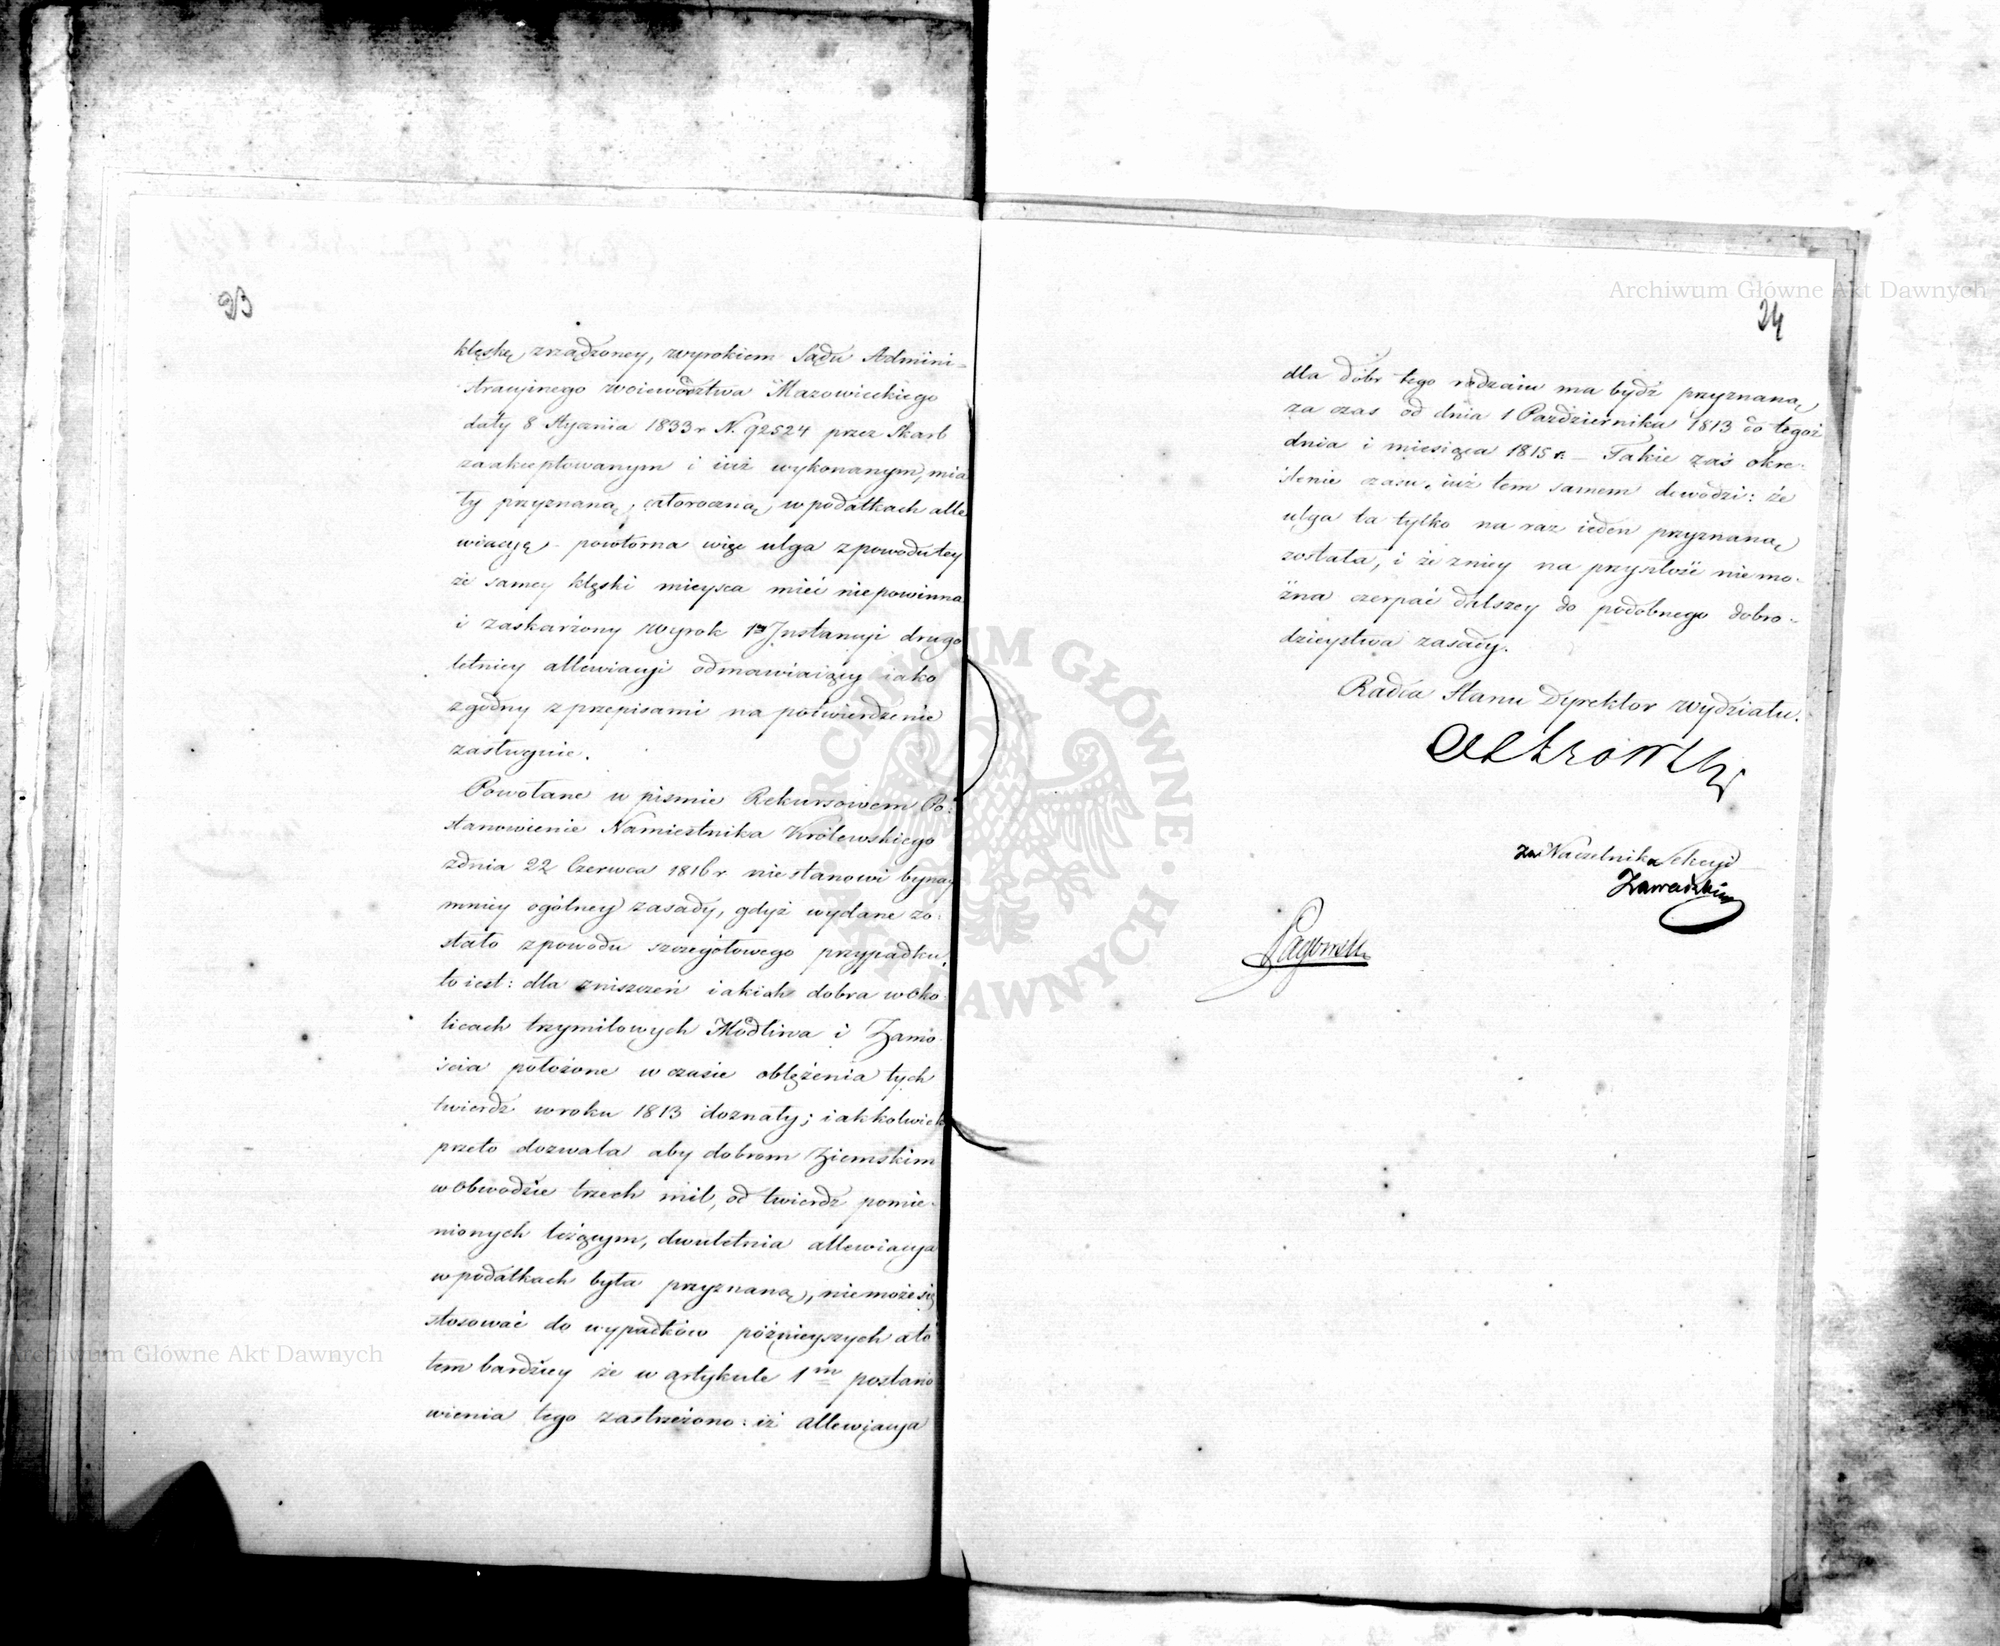 23
klęskę zrządzoney, wyrokiem Sądu Admini-
stracyinego woiewództwa Mazowieckiego
daty 8 Stycznia 1833 r N. 92524 przez Skarb
zaakceptowanym i iuż wykonanym, mia
ły przyznaną, w podatkach alle
wiacyą - powtorna więc ulga z powodu tey
że samey klęski mieysca mieć niepowinna
i zaskarżony wyrok 1ey Instancyi drugo
letniey allewiacyi odmawiaiący iako
zgodny z przepisami na potwierdzenie
zasługuie.
Powołane w pismie Rekursowem Po-
stanowienie Namiestnika Królewskiego
z dnia 22 Czerwca 1816 r nie stanowi bynay
mniey ogólney zasady, gdyż wydane zo-
stało z powodu szczegółowego przypadku,
to iest: dla zniszczeń iakich dobra w Oko-
licach trzymilowych Modlina i Zamo-
ścia położone w czasie oblężenia tych
twierdz w roku 1813 doznały; iakkolwiek
przeto dozwala aby dobrom Ziemskim
w Obwodzie trzech mil, od twierdz pomie-
nionych leżącym, dwuletnia allewiacya
w podatkach była przyznaną, nie może się
stosować do wypadków późnieyszych a to
tem bardziey że w artykule 1m postano
wienia tego zastrzeżono: iż allewiacya
24
dla dóbr tego rodzaiu ma bydź przyznaną
za czas od dnia 1 Pazdziernika 1813 do tegoż
dnia i miesiąca 1815 r. - Takie zaś okre-
ślenie czasu, iuż tem samem dowodzi: że
ulga ta tylko na raz ieden przyznaną
została, i że z niey na przyszłość niemo-
żna czerpać dalszey do podobnego dobro-
dzieystwa zasady.
Radca Stanu Dyrektor wydziału.
za Naczelnika Sekcyi
Zawadzki
Archiwum Główne Akt Dawnych
Archiwum Główne Akt Dawnych
ARCHIWUM GŁÓWNE AKT DAWNYCH